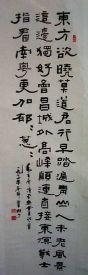 東方欲曉莫道君行早踏遍青山人未老風景
這邊獨好會昌城外高峰顛連直接東溟戰士
指看南粤更加郁〻葱〻